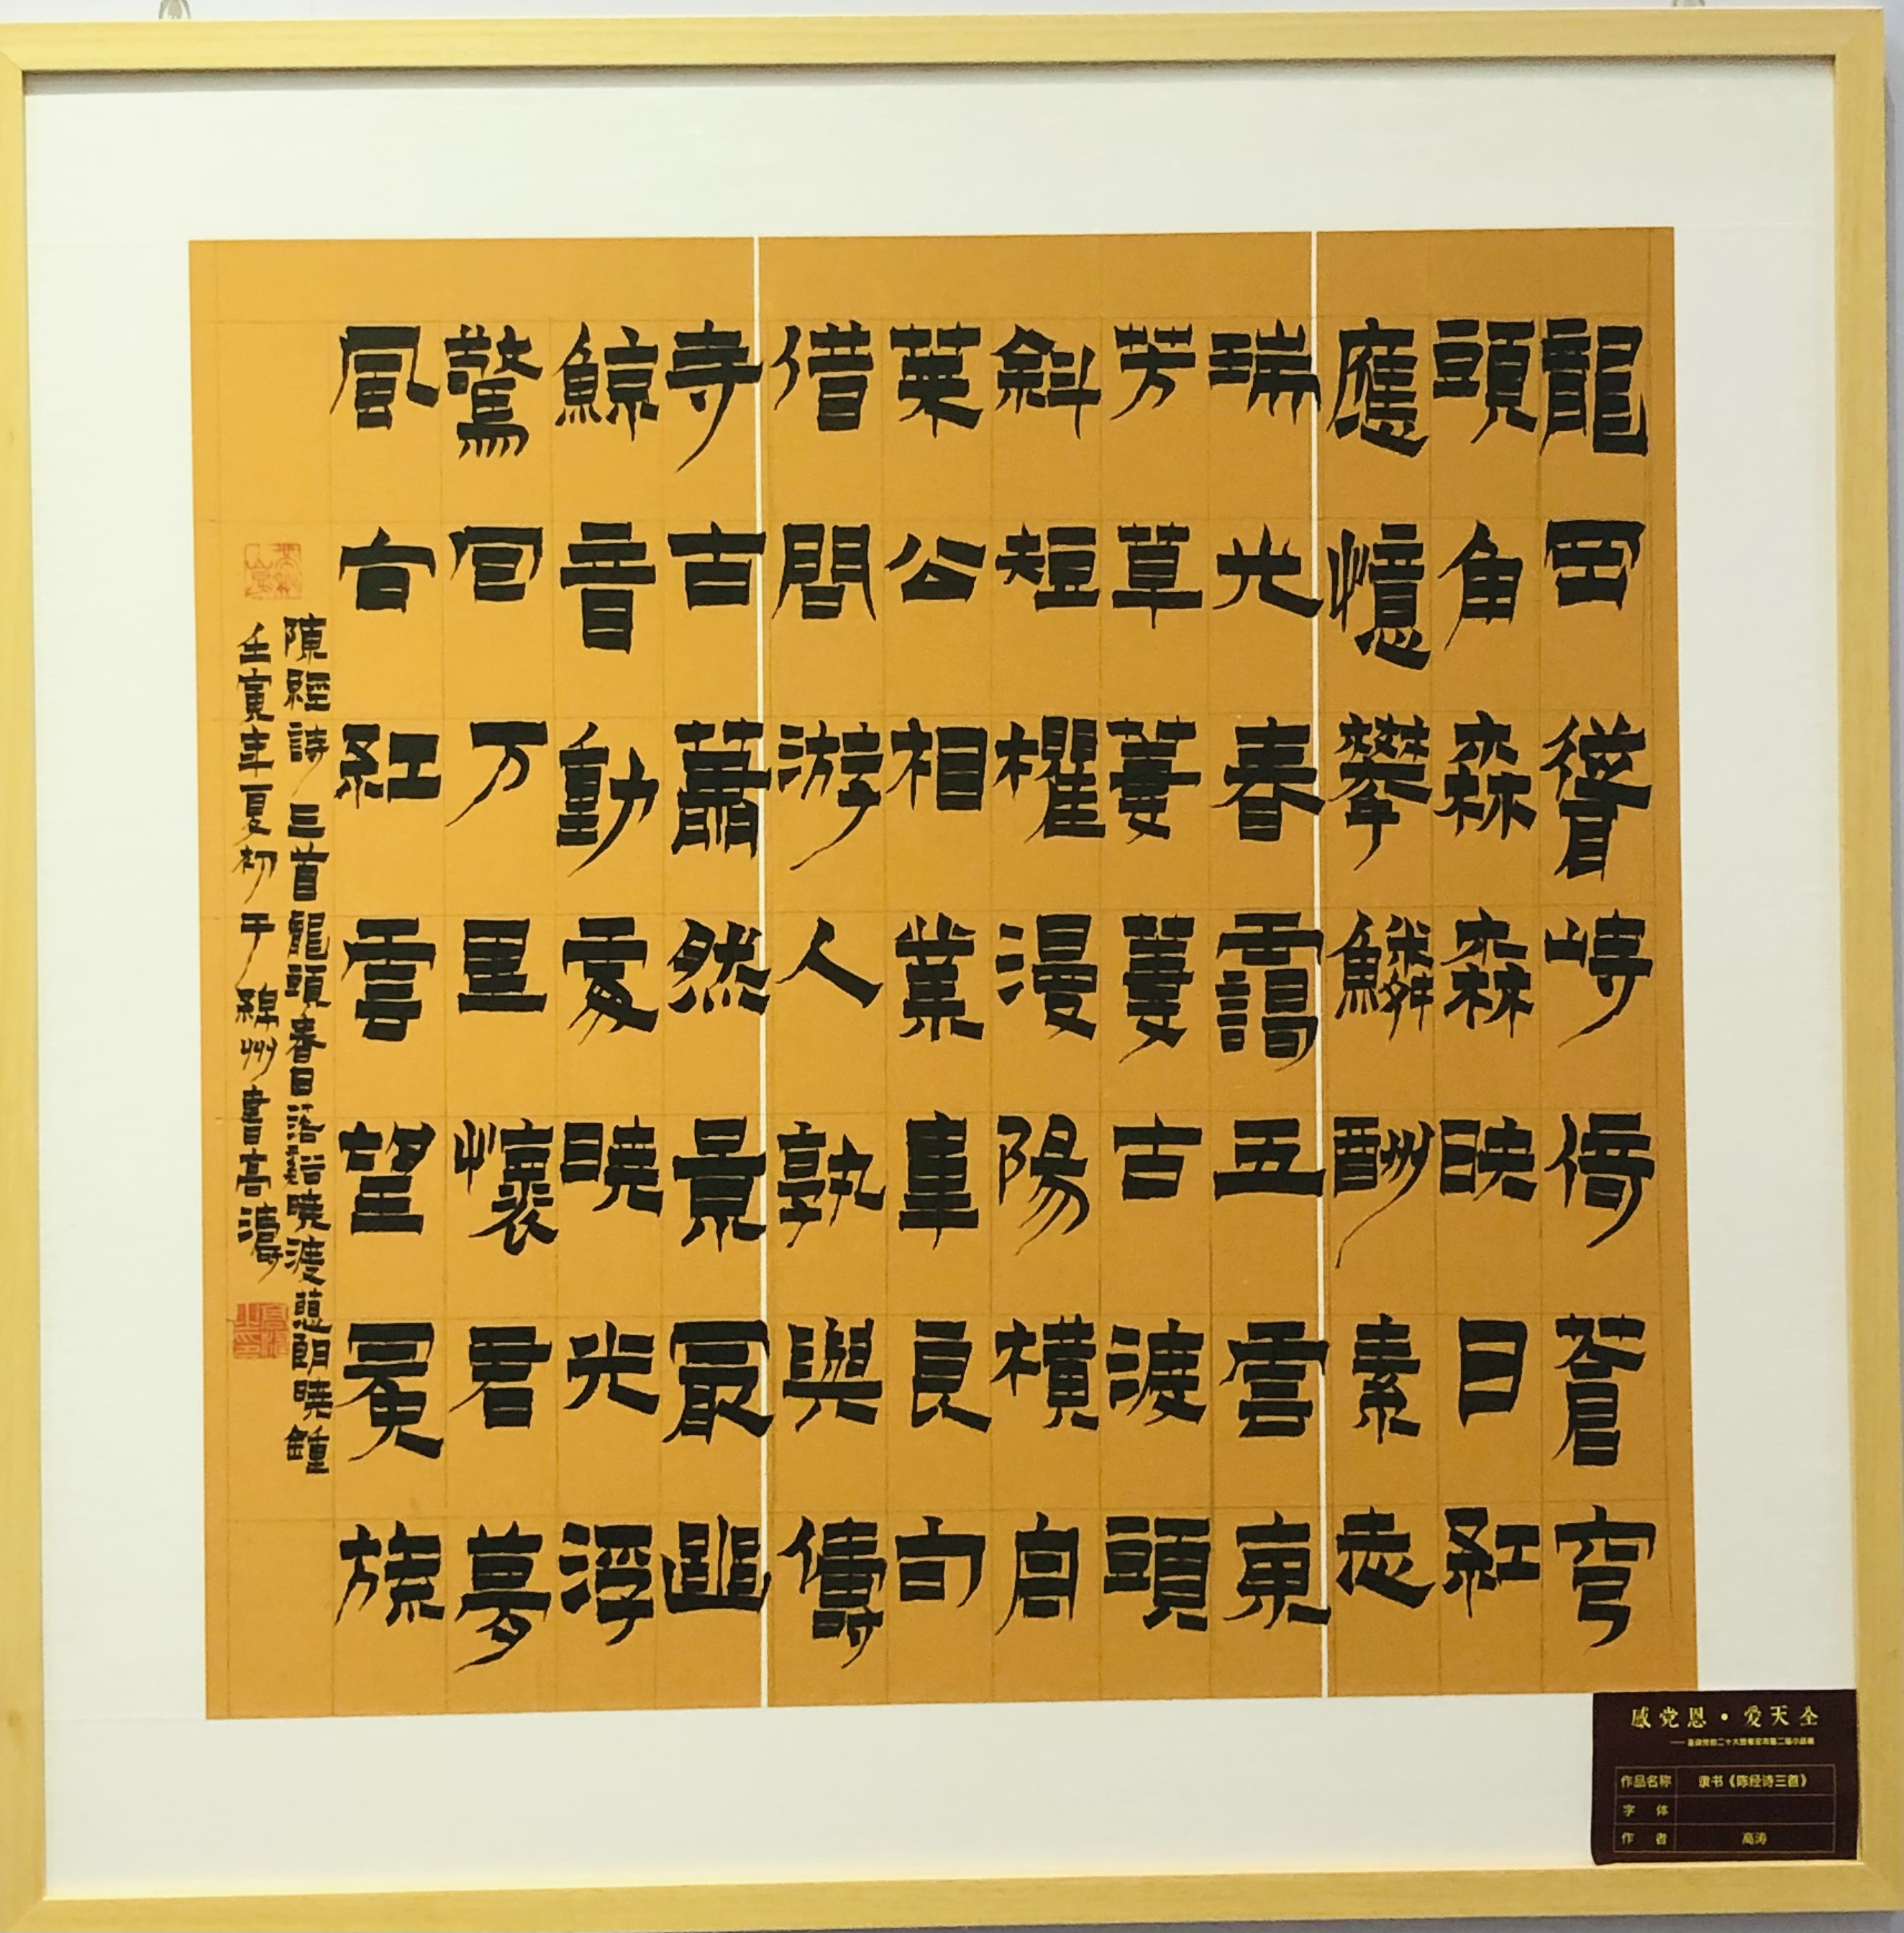 龍岡聳峙倚蒼穹
頭角森森映日紅
應憶攀鱗酬素志
瑞光春靄五雲東
芳草萋萋古渡頭
斜短櫂漫陽橫
萊公相業良句
借問游人孰與儔
寺古蕭然景最幽
鯨音動處曉光浮
驚回万里懷君夢
風紅雲望冕旒
陳經詩三首龍頭春日落谿曉渡慈朗曉鐘
壬寅年夏初于綿州書高濤
感党恩·爱天全
作品名称 隶书《陈经诗三首》
字体
作者 高涛